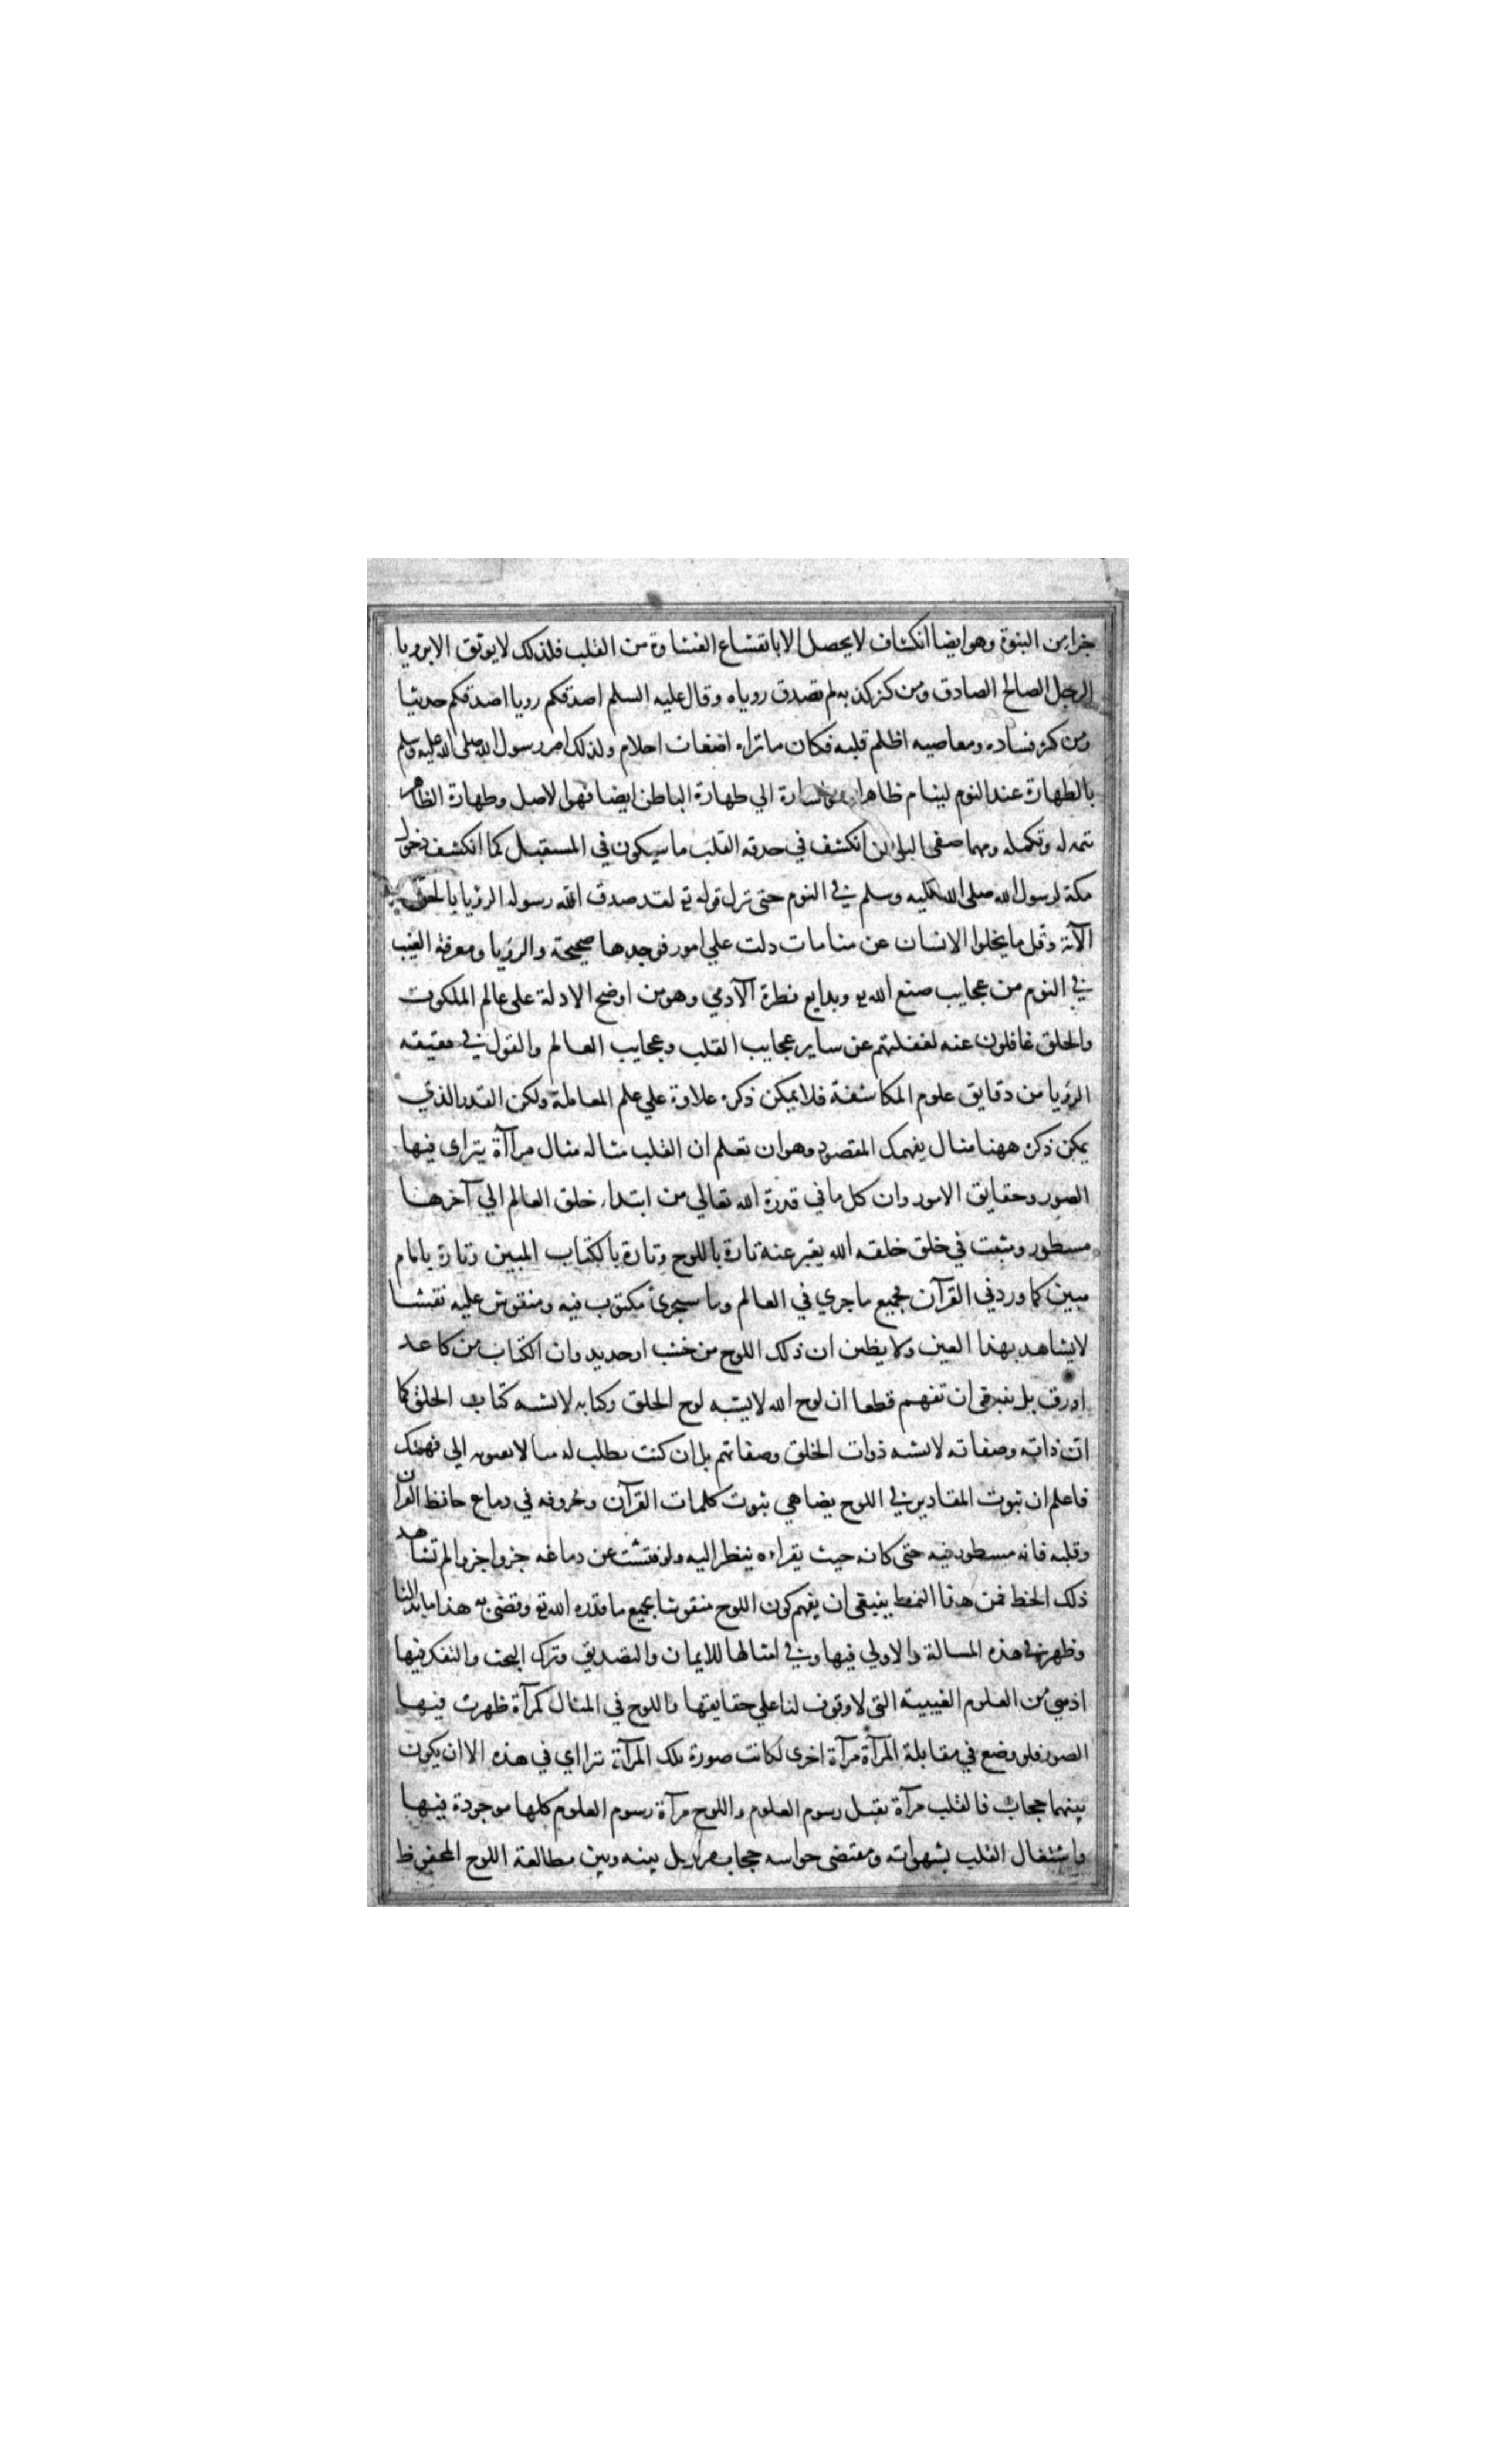 جزا من النبوة وهو ايضا انكشاف لا يحصل الا بانقشاع الغشاوة من القلب فلذلك لا يوثق الا برويا
الرجل الصالح الصادق ومن كثر كذبه لم تصدق روياه وقال عليه السلم اصدقكم رويا اصدقكم حديثا
ومن كثر فساده ومعاصيه اظلم قلبه فكان ما تراه اضغاث احلام ولذلك امر رسول الله صلى الله عليه وسلم
بالطهارة عند النوم لينام ظاهرا الي طهارة الباطن ايضا فهوا لاصل وطهارة الظاهر
تتمه له وتكمله ومهما صفى الباطن انكشف في حدقه القلب ما سيكون في المستقبل كما انكشف دخول
مكة لرسول الله صلى الله عليه وسلم في النوم حتى نزل قوله تع لقد صدق الله رسوله الرؤيا بالحق
الآية وقل ما يخلوا الانسان عن منامات دلت علي امور فوجدها صحيحة والرؤيا ومعرفة الغيب
في النوم من عجايب صنع الله تع وبدايع فطرة الآدمي وهو من اوضح الادلة على عالم الملكوت
والخلق غافلون عنه لغفلتهم عن ساير عجايب القلب وعجايب العالم والقول في حقيقه
الرؤيا من دقايق علوم المكاشفة فلا يمكن ذكره علاوة علي علم المعاملة ولكن القدر الذي
يمكن ذكره ههنا مثال يفهمك المقصود وهو ان تعلم ان القلب مثاله مثال مرآاة يتراي فيها
الصور وحقايق الامور وان كل ما في قدرة الله تعالي من ابتداء خلق العالم الي آخرها
مسطور ومثبت في خلق خلقه الله يعبر عنه تارة باللوح وتارة بالكتاب المبين وتارة بامام
مبين كما ورد في القرآن فجميع ما جري في العالم وما سيجرئ مكتوب فيه ومنقوش عليه نقشا
لا يشاهد بهذا العين ولا يظن ان ذلك اللوح من خشب او حديد وان الكتاب من كاعد
او رق بل ينبغى ان تفهم قطعا ان لوح الله لا يشبه لوح الخلق وكتابه لا يشبه كتاب الخلق كما
ان ذاته وصفاته لا يشبه ذوات الخلق وصفاتهم بل ان كنت تطلب له الي فهمك
فاعلم ان ثبوت المقادير في اللوح يضاهي ثبوت كلمات القرآن وحروفه في دماع حافظ القرآن
وقلبه فانه مسطور فيه حتى كانه حيث يقراءه ينظر اليه ولو فتشت عن دماغه جزوا جزوا لم تشاهد
ذلك الخط فمن هذا النمط ينبغى ان يفهم كون اللوح منقوشا بجميع ما قدره الله تع وقضى به هذا ما بدا لنا
وظهر في هذه المسالة والاولي فيها وفي امثالها للايمان والتصديق وترك البحث والتفكر فيها
اذ هي من العلوم الغيبية التى لا وقوف لنا علي حقايقها واللوح في المثال كمرآة ظهرت فيها
الصور فلو وضع في مقابلة المرآة مرآة اخرى لكانت صورة تلك المرآة تتراي في هذه الا ان يكون
بينهما حجاب فالقلب مرآة تقبل رسوم العلوم واللوح مرآة رسوم العلوم كلها موجودة فيها
واشتغال القلب بشهواته ومقتضى حواسه حجاب مرسل بينه وبين مطالعة اللوح المحفوظ